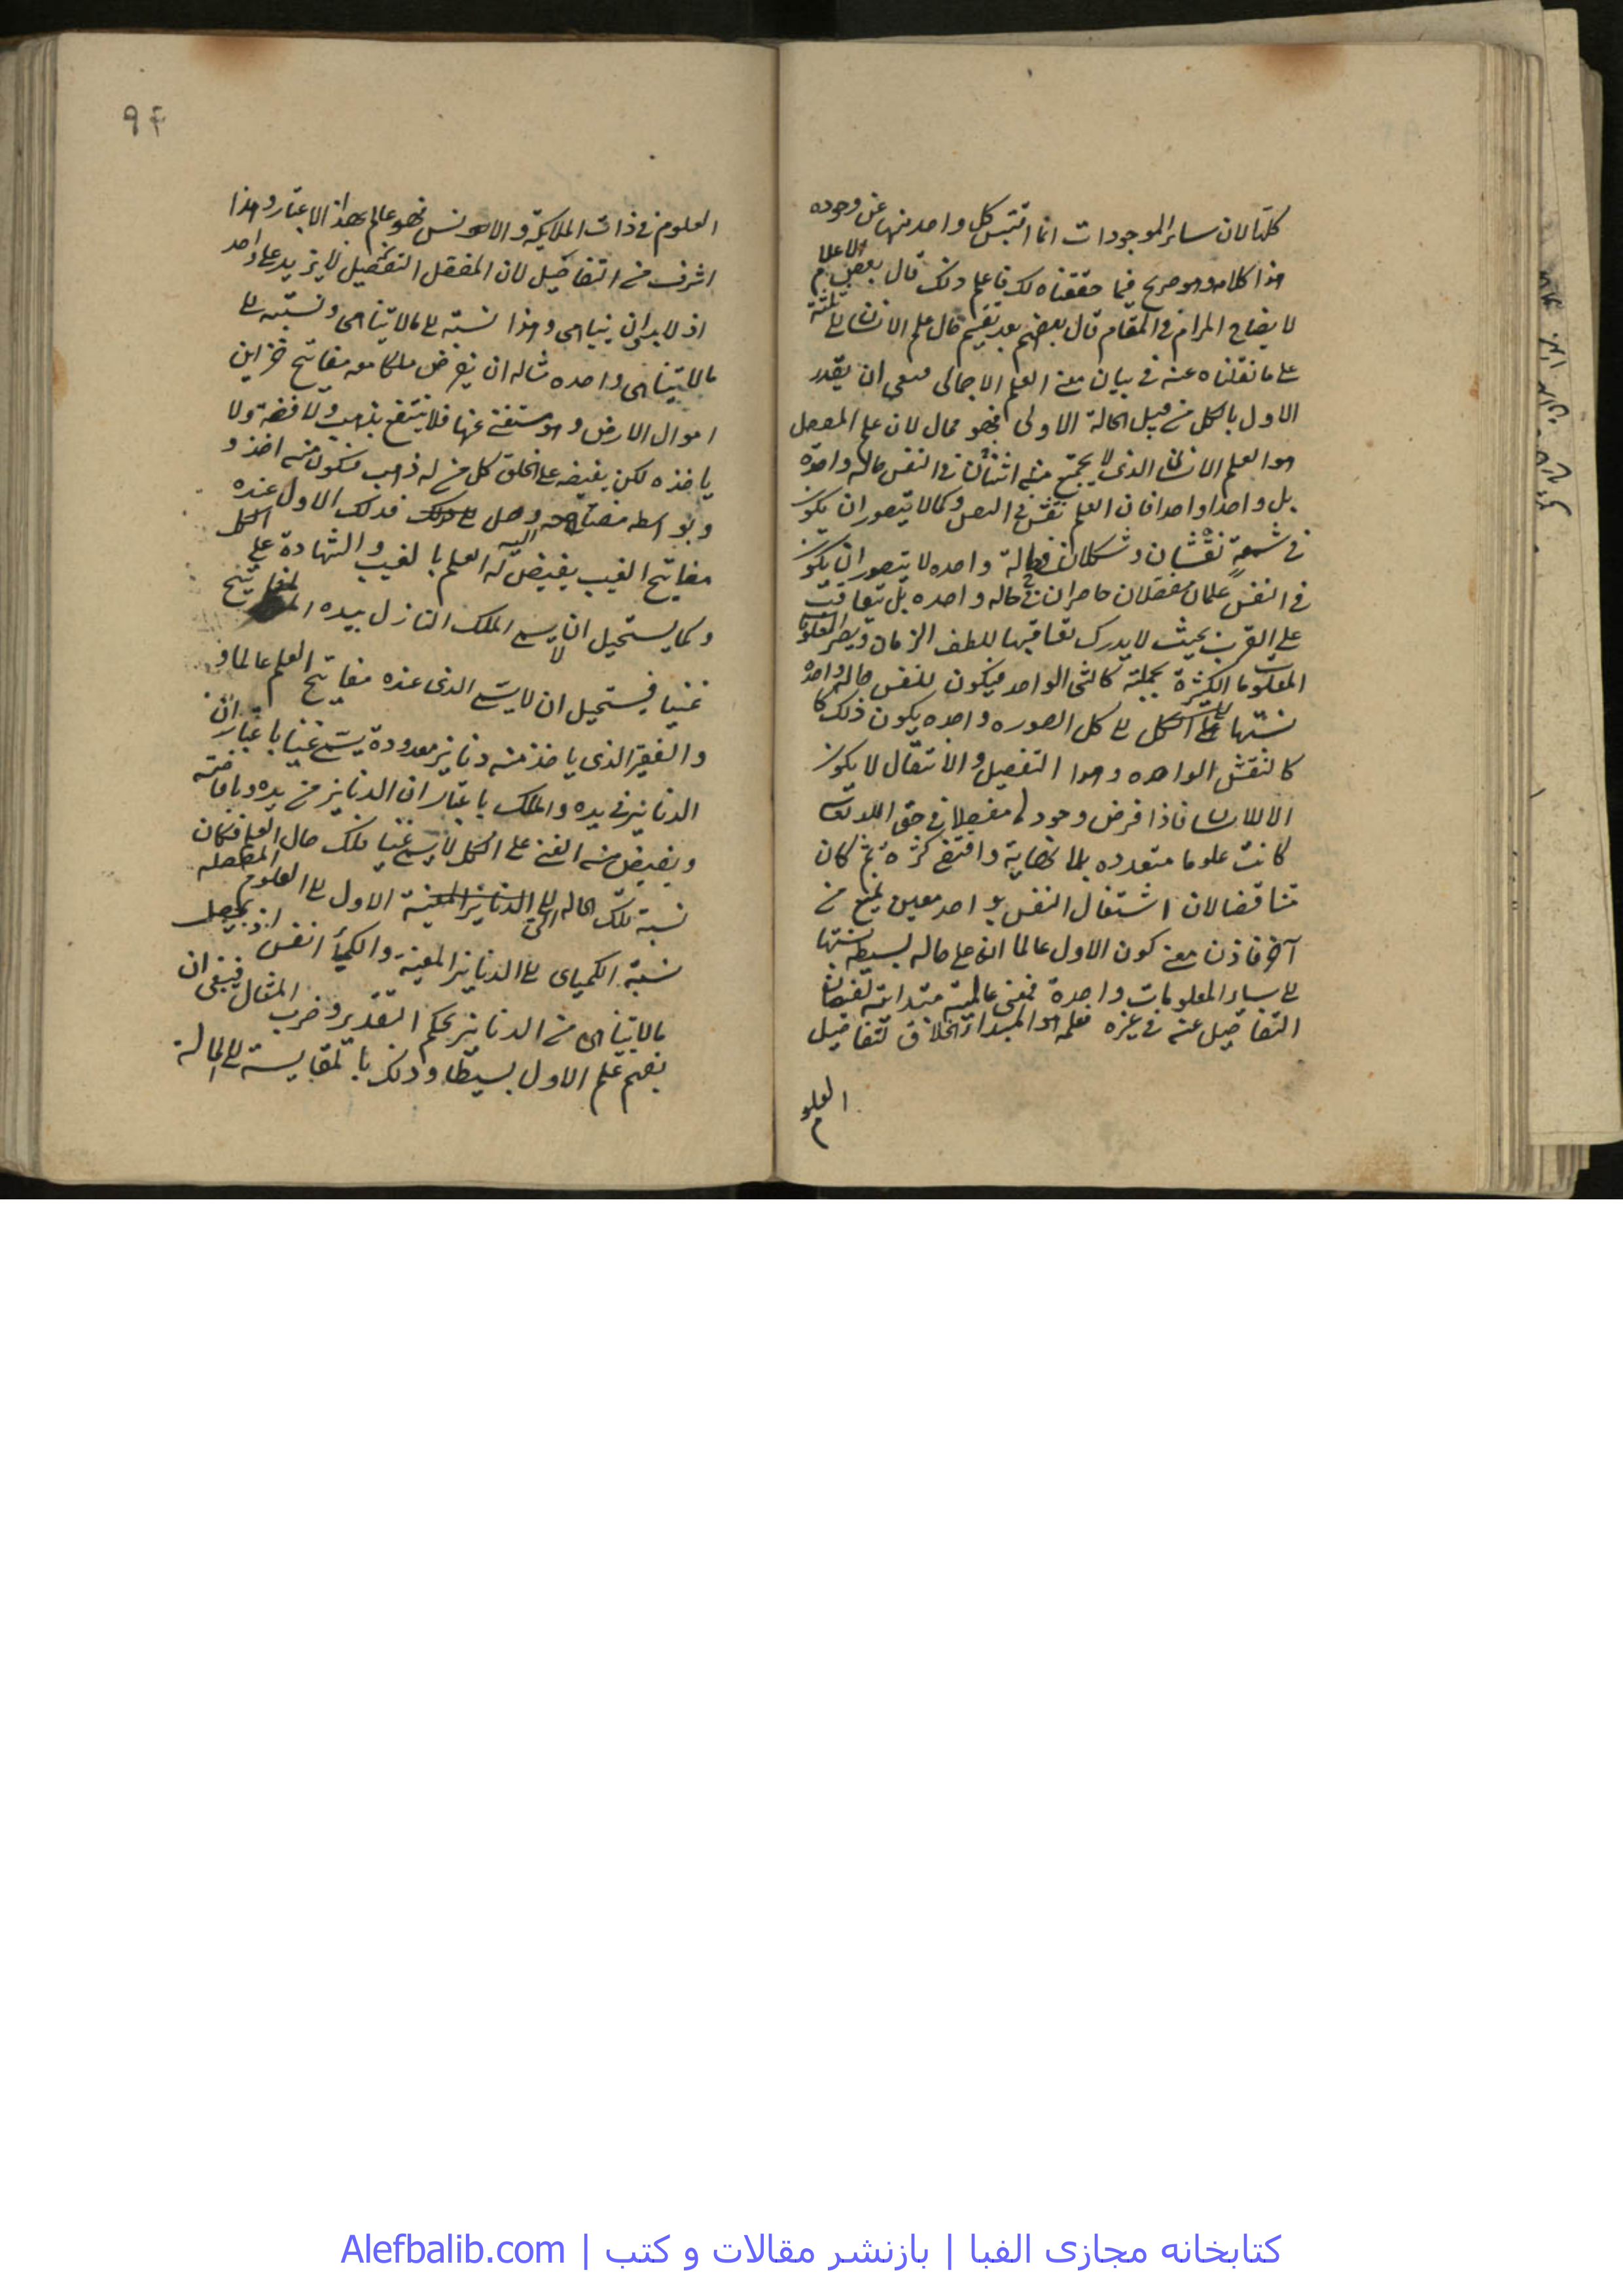 كلها لان سائر الموجودات انما اقتبس كل واحد منها عن وجوده
هذا كلامه وهو صريح فيما حققناه لك فاعلم ذلك قال بعض الاعلام
لايضاح المرام في المقام قال بعضهم بعد تقسيم حال علم الانسان الى ثلثة
على ما نقلناه عنه في بيان معنى العلم الاجمالى فبقى ان يقدر
الاول بالكل من قبيل الحالة الاولى فهو محال لان علم المفصل
هو العلم الانسانى الذى لا يجتمع منه اثنان في النفس حاله واحدة
بل واحدا واحدا فان العلم نقش في النفس وكما لا يتصور ان يكون
في شمعة نقشان وشكلان في حالة واحده لا يتصور ان يكون
في النفس علمان مفصلان حاضران في حاله واحده بل يتعاقب
على القرب بحيث لا يدرك تعاقبها للطف الزمان ويصير المعلومات
المعلومات الكثيرة بجملتها كالشى الواحد فيكون للنفس حاله واحدة
نسبتها الى كل الصوره واحده يكون ذلك
كالنقش الواحده وهذا التفصيل والانتقال لا يكون
الا للانسان فاذا فرض وجود مفصلا في حق الله تعالى
كانت علوما متعدده بلا نهاية واقتضى كثرة ثم كان
متناقضا لان اشتغال النفس بواحد معين يمنع من
آخر فاذن معنى كون الاول عالما انه على حاله بسيطه نسبتها
الى ساير المعلومات واحدة فمعنى عالميته مبدائيته لفيضان
التفاصيل عنه في غيره فعلمه هو المبدا الخلاق لتفاصيل
العلوم
٩٤
العلوم في ذات الملايكة والانس فهو عالم بهذا الاعتبار وهذا
اشرف من التفاضيل لان المفصل لا يزيد على واحد
اذ لابد وان يتناهى وهذا نسبته الى مالا يتناهى ونسبته الى
مالا يتناهى واحده مثاله ان نفرض ملكا معه مفاتيح خزاين
اموال الارض وهو مستغنى عنها فلا ينتفع بذهب ولا فضة ولا
ياخذه لكن يفيضه على الخلق كل من له ذهب فيكون منه اخذ و
وبواسطه مفتاحه وصل اليه فذلك الاول عنده
مفاتيح الغيب يفيض له العلم بالغيب والشهادة على الكل
وكما يستحيل ان لا يسمى الملك النازل بيده المفاتيح
غنيا فيستحيل ان لا يسمى الذى عنده مفاتيح العلم عالما و
والفقير الذى ياخذ منه دنانير معدودة يسمى غنيا باعتبار ان
الدنانير في يده والملك باعتبار ان الدنانير من يده وبافاضته
ويفيض منه الغنى على الكل لا يسمى غنيا فلك حال العلم فكان
نسبة تلك الحاله التي الاول الى العلوم المفصله
نسبة الكمياى الى الدنانير المعينة والكمياء انفس اذ يحصل
مالا يتناهى من الدنانير بحكم التقدير وضرب المثال فينبغى ان
يفهم علم الاول بسيطا وذلك بالمقايسة الى الحالة
كتابخانه مجازی الفبا | بازنشر مقالات و کتب | Alefbalib.com